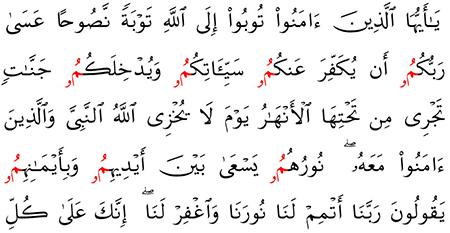 يَـٰٓأَيُّهَا ٱلَّذِينَ ءَامَنُوا۟ تُوبُوٓا۟ إِلَى ٱللَّهِ تَوْبَةً نَّصُوحًا عَسَىٰ
رَبُّكُمُۥٓ أَن يُكَفِّرَ عَنكُمُۥ سَيِّـَٔاتِكُمُۥ وَيُدْخِلَكُمُۥ جَنَّـٰتٍ
تَجْرِى مِن تَحْتِهَا ٱلْأَنْهَـٰرُ يَوْمَ لَا يُخْزِى ٱللَّهُ ٱلنَّبِىَّ وَٱلَّذِينَ
ءَامَنُوا۟ مَعَهُۥ ۖ نُورُهُمُۥ يَسْعَىٰ بَيْنَ أَيْدِيهِمُۥ وَبِأَيْمَـٰنِهِمُۥ
يَقُولُونَ رَبَّنَآ أَتْمِمْ لَنَا نُورَنَا وَٱغْفِرْ لَنَآ ۖ إِنَّكَ عَلَىٰ كُلِّ